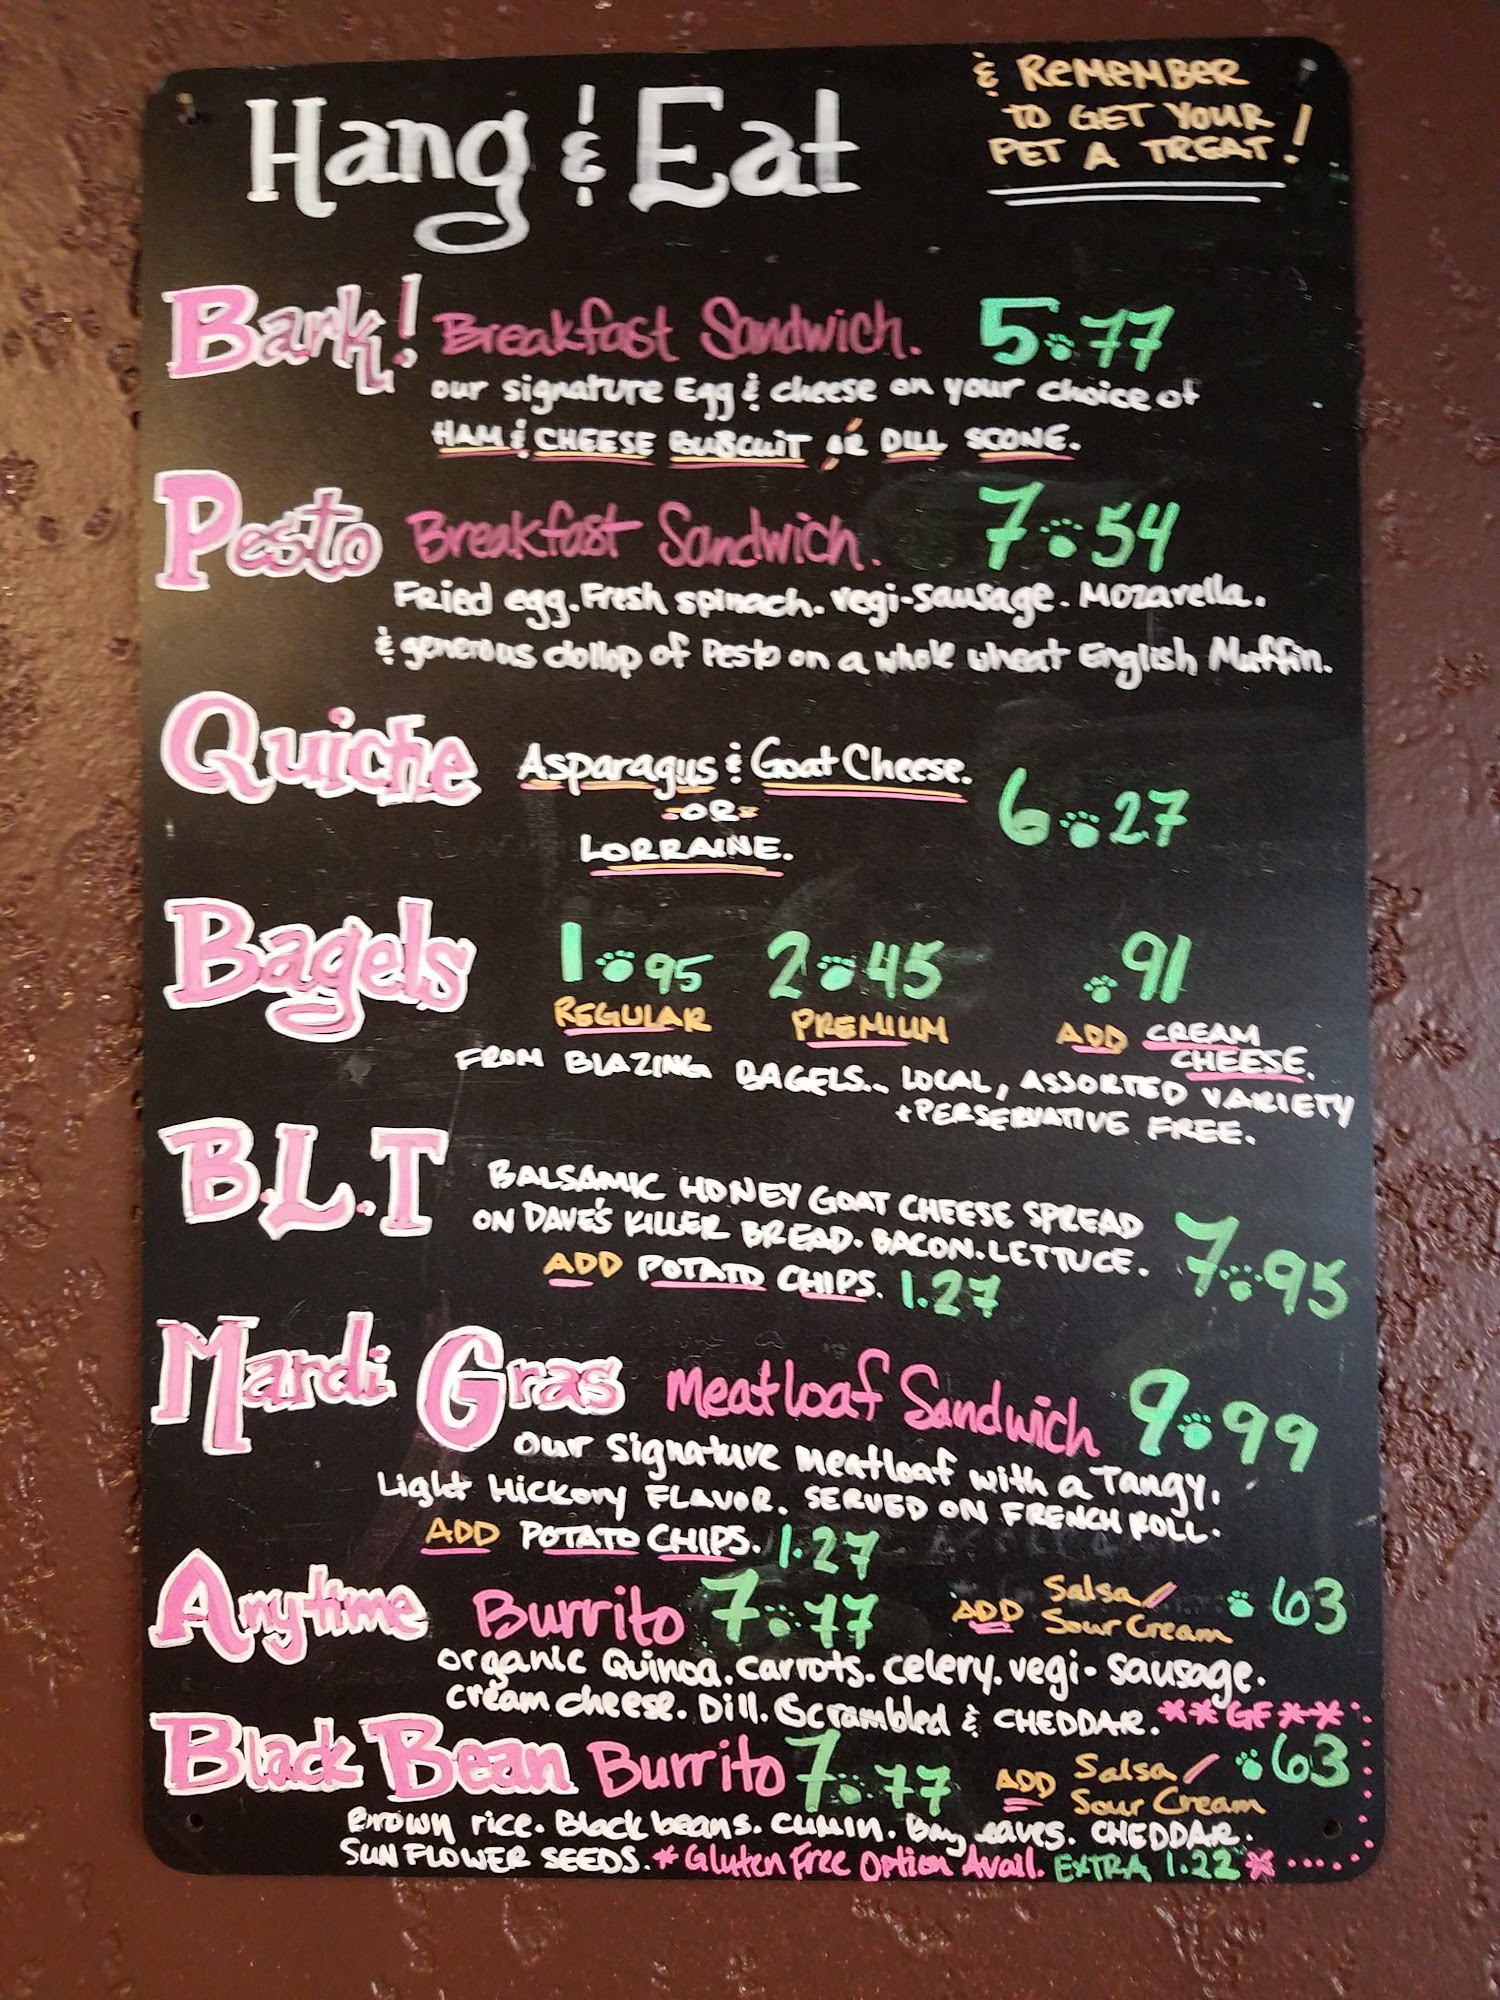 Hang & Eat
& REMEMBER
TO GET YOUR
PET A TREAT!
Bark! Breakfast Sandwich. 5.77
our signature Egg & cheese on your choice of
HAM & CHEESE BUISCUIT OR DILL SCONE.
Pesto Breakfast Sandwich. 7.54
Fried egg. Fresh spinach. vegi-sausage. Mozarella.
& generous dollop of Pesto on a whole wheat English Muffin.
Quiche Asparagus & Goat Cheese. 6.27
-OR-
LORRAINE.
Bagels 1.95 2.45 .91
REGULAR PREMIUM ADD CREAM
CHEESE.
FROM BLAZING BAGELS... LOCAL, ASSORTED VARIETY
+PERSERVATIVE FREE.
B.L.T BALSAMIC HONEY GOAT CHEESE SPREAD
ON DAVE'S KILLER BREAD. BACON. LETTUCE. 7.95
ADD POTATO CHIPS. 1.27
Mardi Gras Meatloaf Sandwich 9.99
our signature meatloaf with a Tangy,
Light Hickory FLAVOR. SERVED ON FRENCH ROLL.
ADD POTATO CHIPS. 1.27
Anytime Burrito 7.77 ADD Salsa/ .63
Sour Cream
organic Quinoa. carrots. celery. vegi-sausage.
cream cheese. Dill. Scrambled & CHEDDAR. **GF**
Black Bean Burrito 7.77 ADD Salsa/ .63
Sour Cream
Brown rice. Black beans. cumin. Bay leaves. CHEDDAR.
SUNFLOWER SEEDS. *Gluten Free Option Avail. EXTRA 1.22*